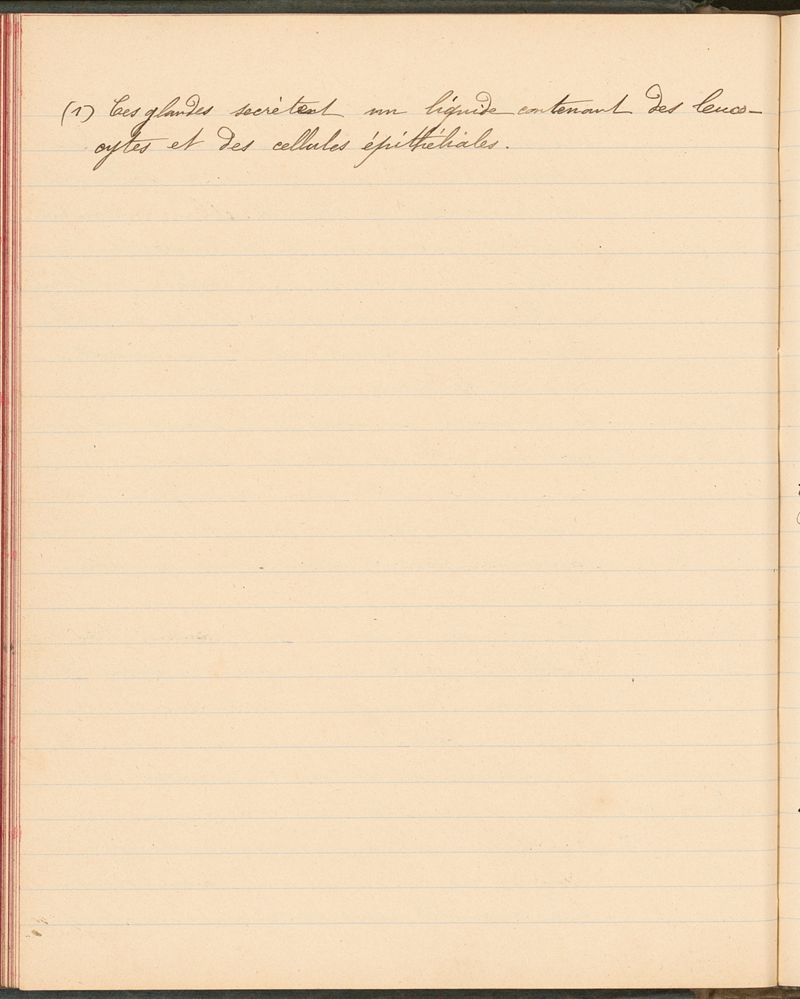 (1) Ces glandes secrètent un liquide contenant des leuco-
cytes et des cellules épithéliales.